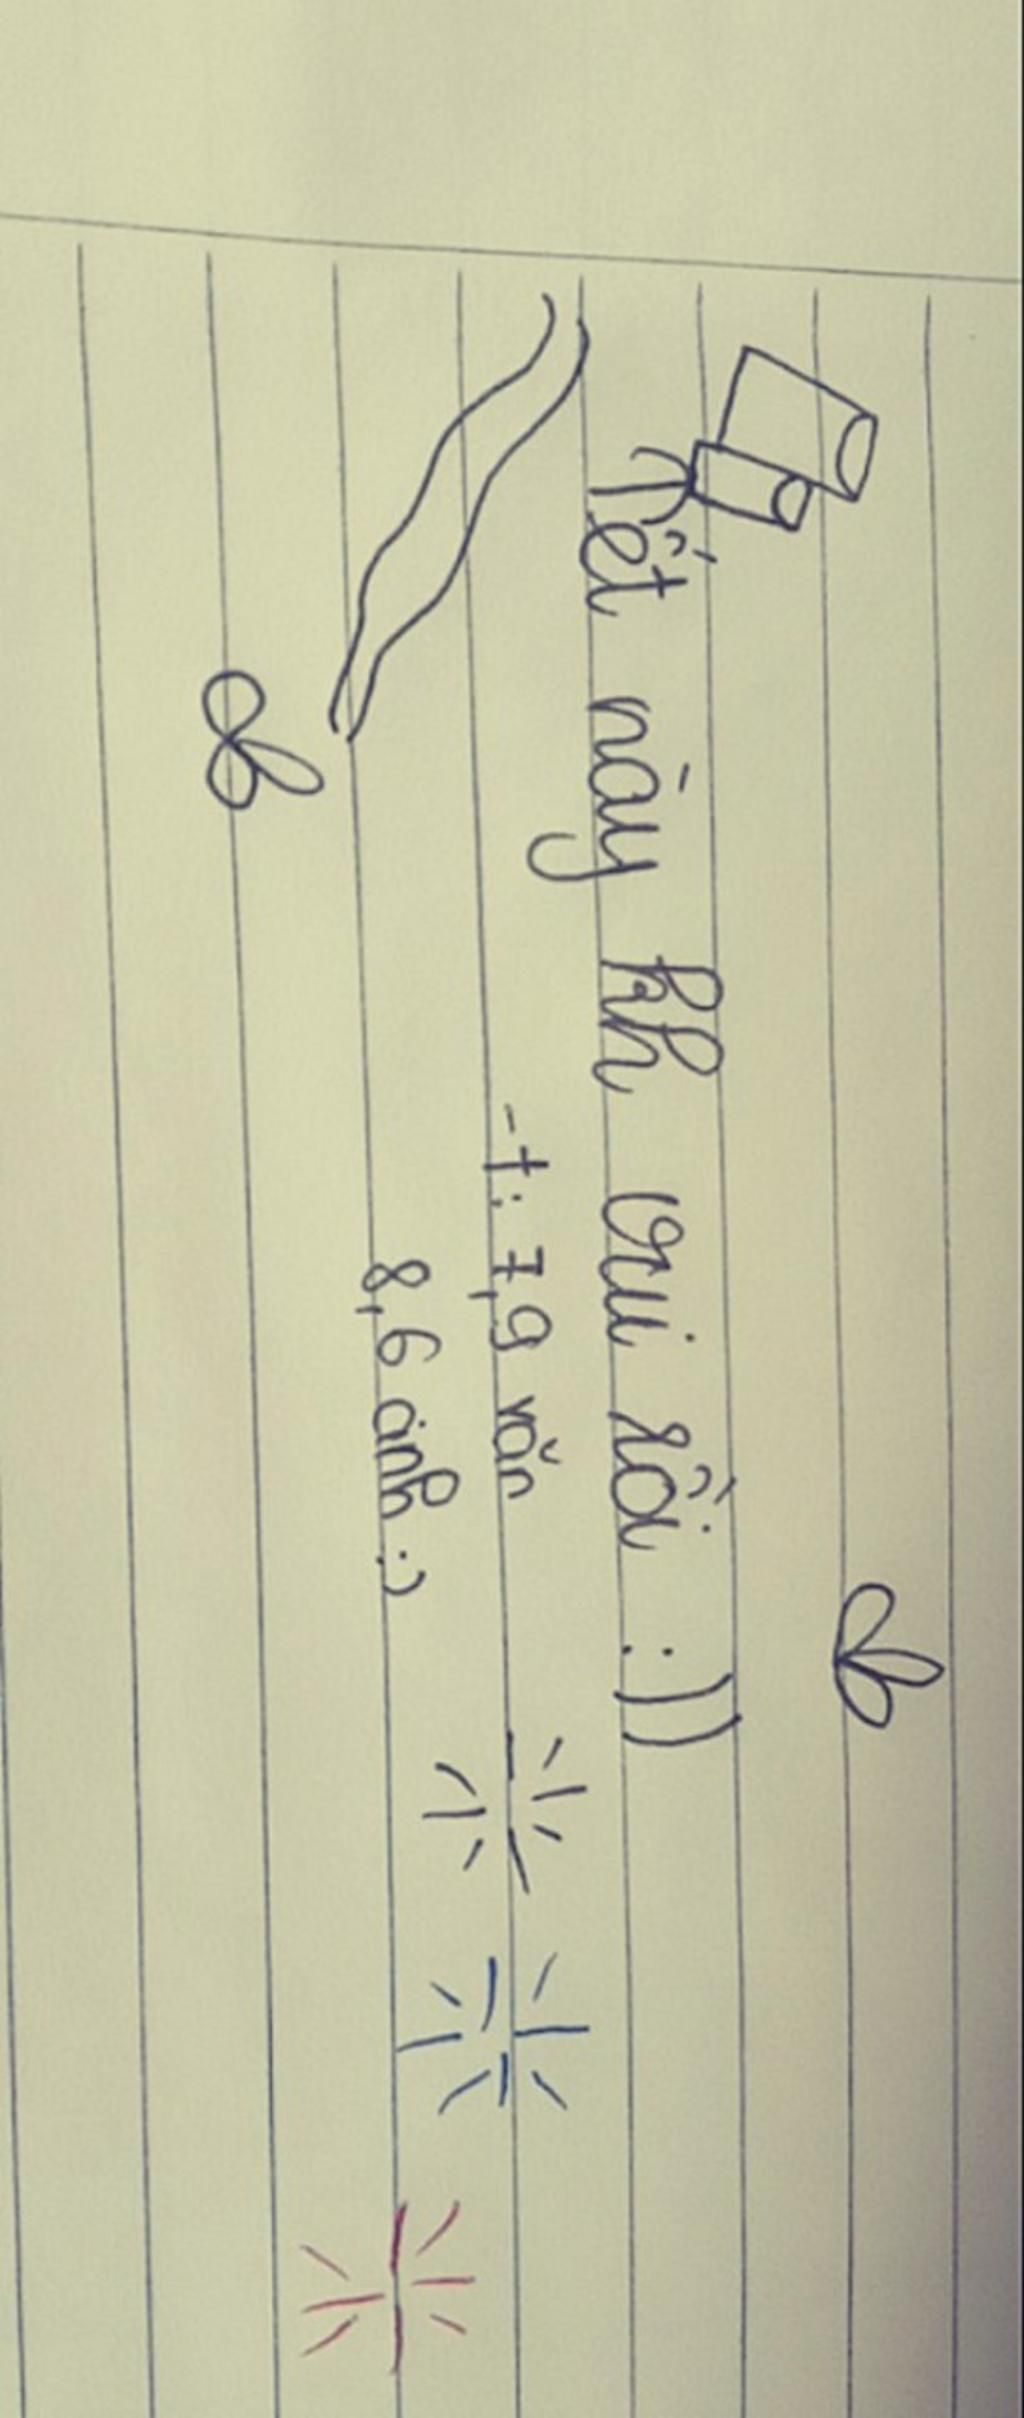 Tết này kh vui rồi :))
-t: 7,9 văn
8,6 anh :)